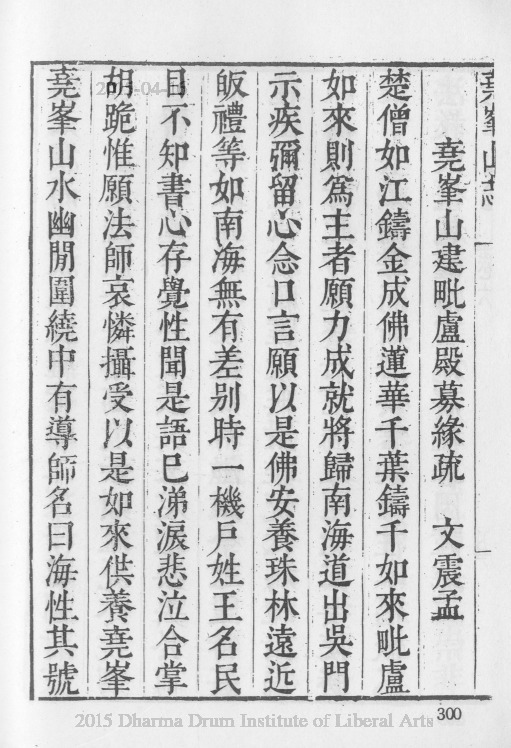 堯峯山志
堯峯山建毗盧殿募緣疏　文震孟
楚僧如江鑄金成佛蓮華千葉鑄千如來毗盧
如來則爲主者願力成就將歸南海道出吳門
示疾彌留心念口言願以是佛安養珠林遠近
皈禮等如南海無有差別時一機戶姓王名民
目不知書心存覺性聞是語巳涕淚悲泣合掌
胡跪惟願法師哀憐攝受以是如來供養堯峯
堯峯山水幽閒圍繞中有導師名曰海性其號
300
2015 Dharma Drum Institute of Liberal Arts